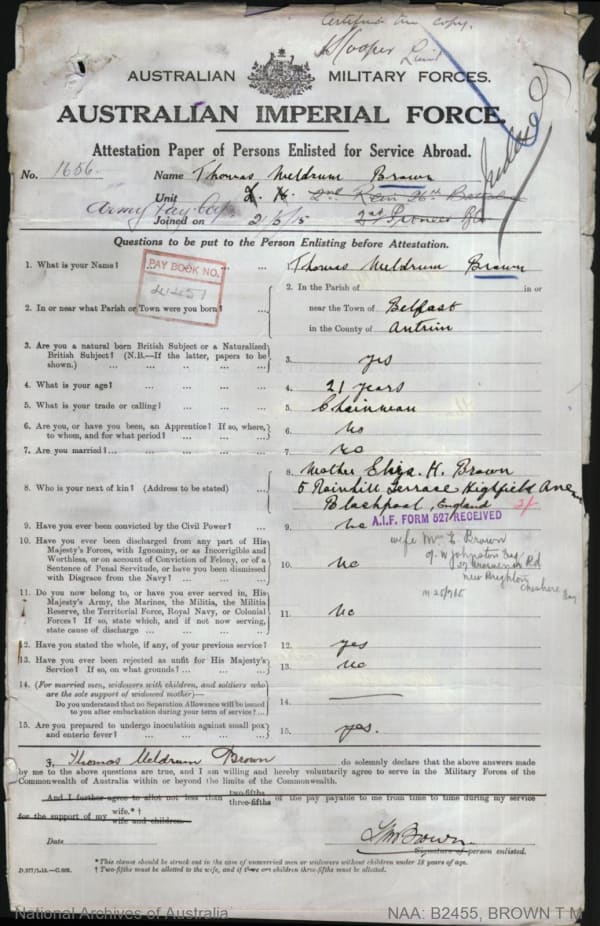 Certified true copy.
Cooper Lieut
AUSTRALIAN MILITARY FORCES.
AUSTRALIAN IMPERIAL FORCE.
Attestation Paper of Persons Enlisted for Service Abroad.
No. 1656. Name Thomas Meldrum Brown
Unit
Joined on 21/5/15 2nd Pioneer Bn
Questions to be put to the Person Enlisting before Attestation.
1. What is your Name? ... ... 1. Thomas Meldrum Brown
PAY BOOK NO.
2. In or near what Parish or Town were you born? 2. In the Parish of in or
near the Town of Belfast
in the County of Antrim
3. Are you a natural born British Subject or a Naturalized
British Subject? (N.B.—If the latter, papers to be
shown.) ... ... ... ... 3. yes
4. What is your age? ... ... ... ... 4. 21 years
5. What is your trade or calling? ... ... ... 5. Chainman
6. Are you, or have you been, an Apprentice? If so, where,
to whom, and for what period? ... ... ... 6. No
7. Are you married? ... ... ... ... 7. No
8. Who is your next of kin? (Address to be stated) ... 8. Mother Eliza. H. Brown
5 Rainhill Terrace Highfield Avenue
Blackpool, England
A.I.F. FORM 527 RECEIVED
9. Have you ever been convicted by the Civil Power? ... 9. No
wife Mrs E Brown
10. Have you ever been discharged from any part of His
Majesty's Forces, with Ignominy, or as Incorrigible and
Worthless, or on account of Conviction of Felony, or of a
Sentence of Penal Servitude, or have you been dismissed
with Disgrace from the Navy? ... ... ... 10. No
27 Grosvenor Rd
New Brighton
Cheshire Eng
11. Do you now belong to, or have you ever served in, His
Majesty's Army, the Marines, the Militia, the Militia
Reserve, the Territorial Force, Royal Navy, or Colonial
Forces? If so, state which, and if not now serving,
state cause of discharge ... ... ... 11. No
12. Have you stated the whole, if any, of your previous service? 12. yes
13. Have you ever been rejected as unfit for His Majesty's
Service? If so, on what grounds? ... ... ... 13. No
14. (For married men, widowers with children, and soldiers who
are the sole support of widowed mother)—
Do you understand that no Separation Allowance will be issued
to you after embarkation during your term of service? ... 14.
15. Are you prepared to undergo inoculation against small pox
and enteric fever? ... ... ... ... 15. yes.
I, Thomas Meldrum Brown do solemnly declare that the above answers made
by me to the above questions are true, and I am willing and hereby voluntarily agree to serve in the Military Forces of the
Commonwealth of Australia within or beyond the limits of the Commonwealth.
And I further agree to allot not less than two-fifths three-fifths of the pay payable to me from time to time during my service
for the support of my wife.* † wife and children.
Date TMBrown
Signature of person enlisted.
*This clause should be struck out in the case of unmarried men or widowers without children under 18 years of age.
† Two-fifths must be allotted to the wife, and if there are children three-fifths must be allotted.
National Archives of Australia NAA: B2455, BROWN T M